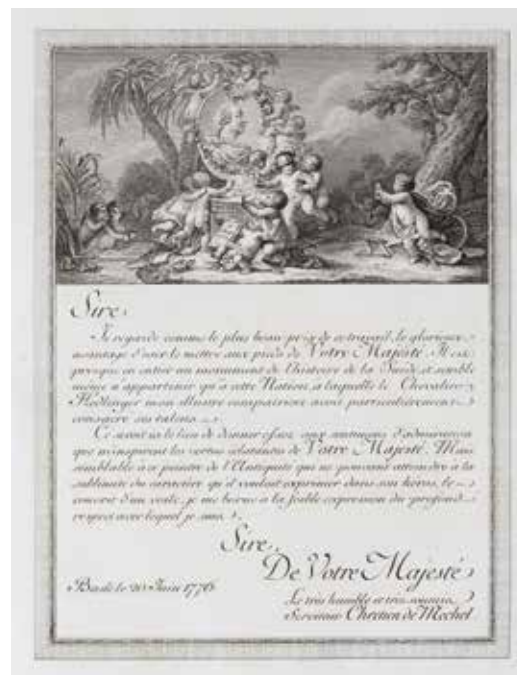 Sire,
Je regarde comme le plus beau prix de ce travail, le glorieux
avantage d'oser le mettre aux pieds de Votre Majesté. Il est
presque en entier un monument de l'histoire de la Suède, et semble
même n'appartenir qu'à cette Nation, à laquelle le Chevalier
Hedlinger mon illustre compatriote avoit particulièrement
consacré ses talens.
Ce seroit ici le lieu de donner essor aux sentimens d'admiration
que m'inspirent les vertus éclatantes de Votre Majesté. Mais
semblable à ce peintre de l'Antiquité qui ne pouvant atteindre à la
sublimité du caractère qu'il vouloit exprimer dans son héros, le
couvrit d'un voile, je me borne à la foible expression du profond
respect avec lequel je suis,
Sire,
De Votre Majesté
Basle le 20 Juin 1776.
Le très humble et très soumis
Serviteur Chrétien de Mechel